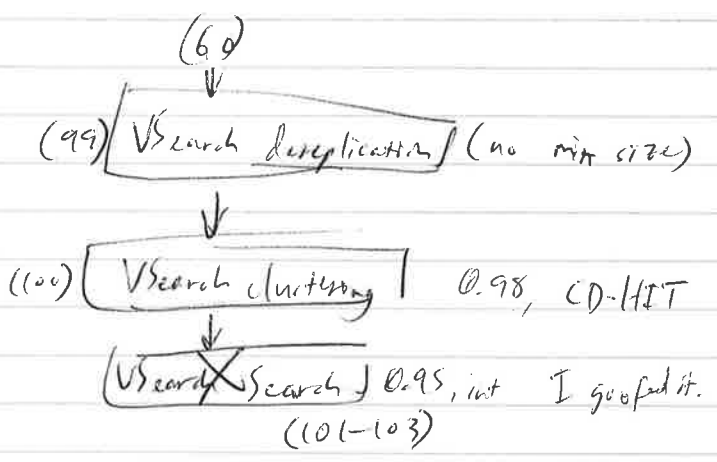 (60)
(99) VSearch dereplication (no min size)
(100) VSearch clustering 0.98, CD-HIT
VSearch Search 0.95, int I goofed it.
(101-103)